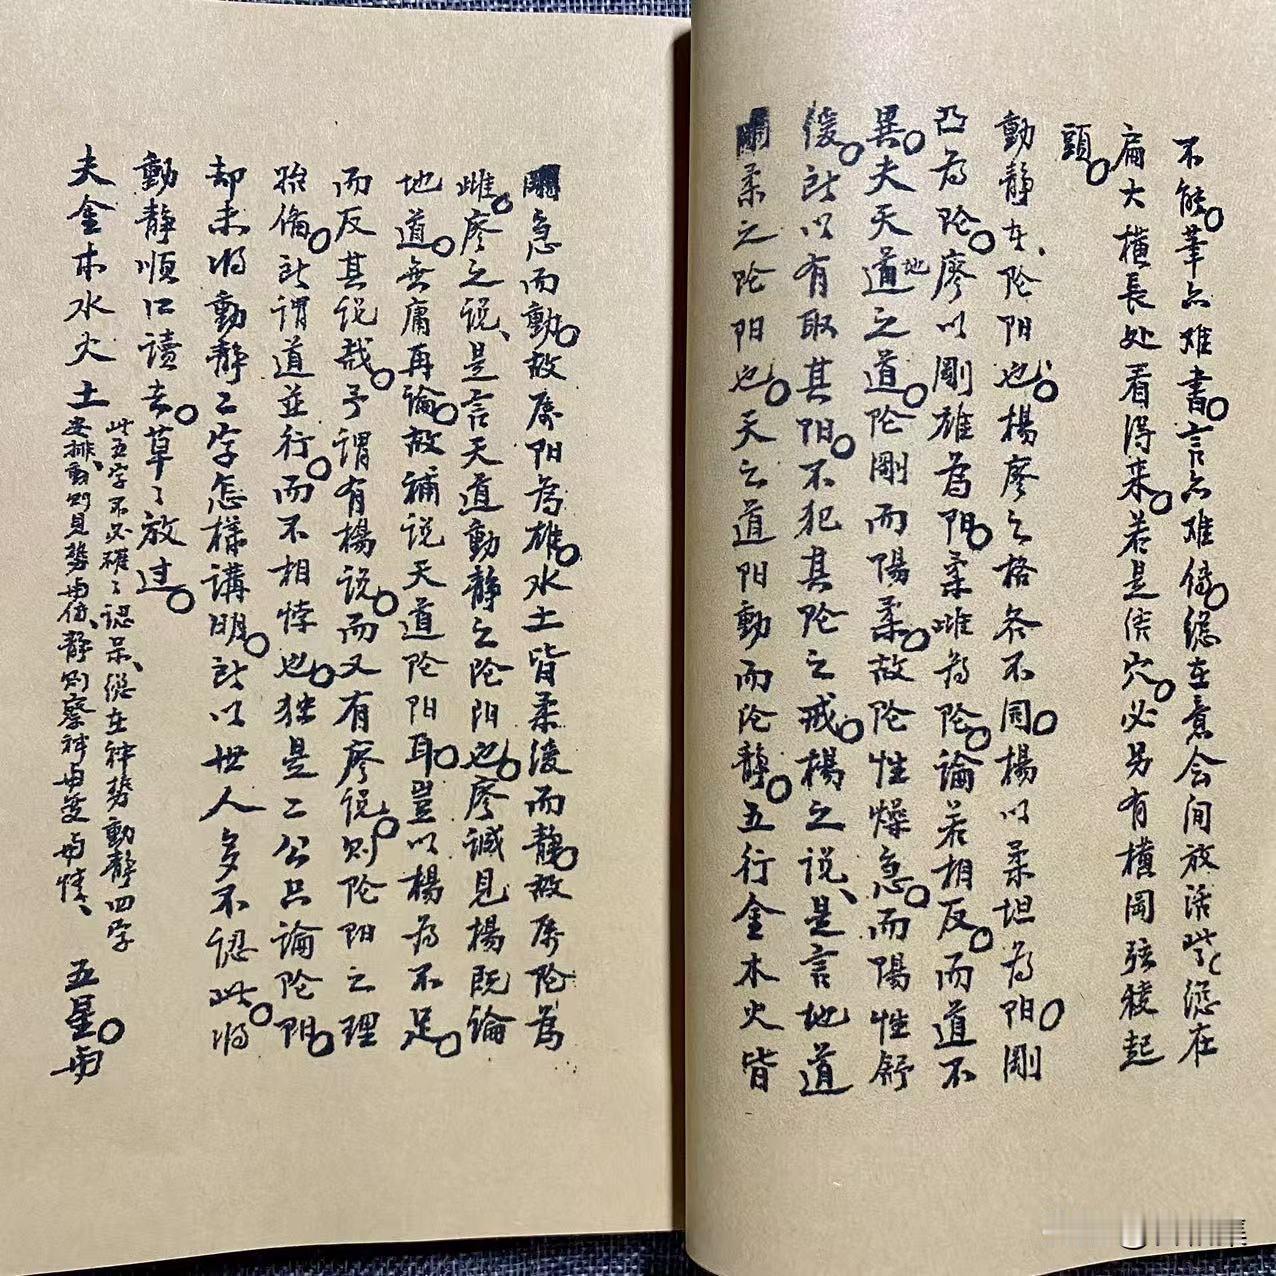 不能。筆亦难書。言亦难傳。總在意会间放活些、總在
扁大橫長处看得来。若是侯穴。必另有橫岡弦稜起
頭。
動靜在、阾阳也。楊廖之格各不同。楊以柔坦為阳。剛
凸為阾。廖以剛雄為阳。柔雌為阾。論若相反。而道不
異。夫天道地之道。阾剛而陽柔。故阾性燥急。而陽性舒
緩。所以有取其阳。不犯其阾之戒。楊之说、是言地道
剛柔之阾阳也。天之道阳動而阾靜。五行金木火皆
剛急而動。故屬阳為雄。水土皆柔緩而靜。故屬阾為
雌。廖之说、是言天道動靜之阾阳也。廖誠見楊既論
地道。無庸再論。故補说天道阾阳耳。豈以楊為不足。
而反其说哉。予谓有楊说。而又有廖说。则阾阳之理
始俻。所謂道並行。而不相悖也。独是二公只論阾阳。
却未将動靜二字怎樣講明。所以世人多不認此。将
動靜順口讀去。草々放过。
夫金木水火土 此五字不必確々認呆、總在神势動靜四字
安排、動则見势与值、靜则察神与变与情、 五星。与